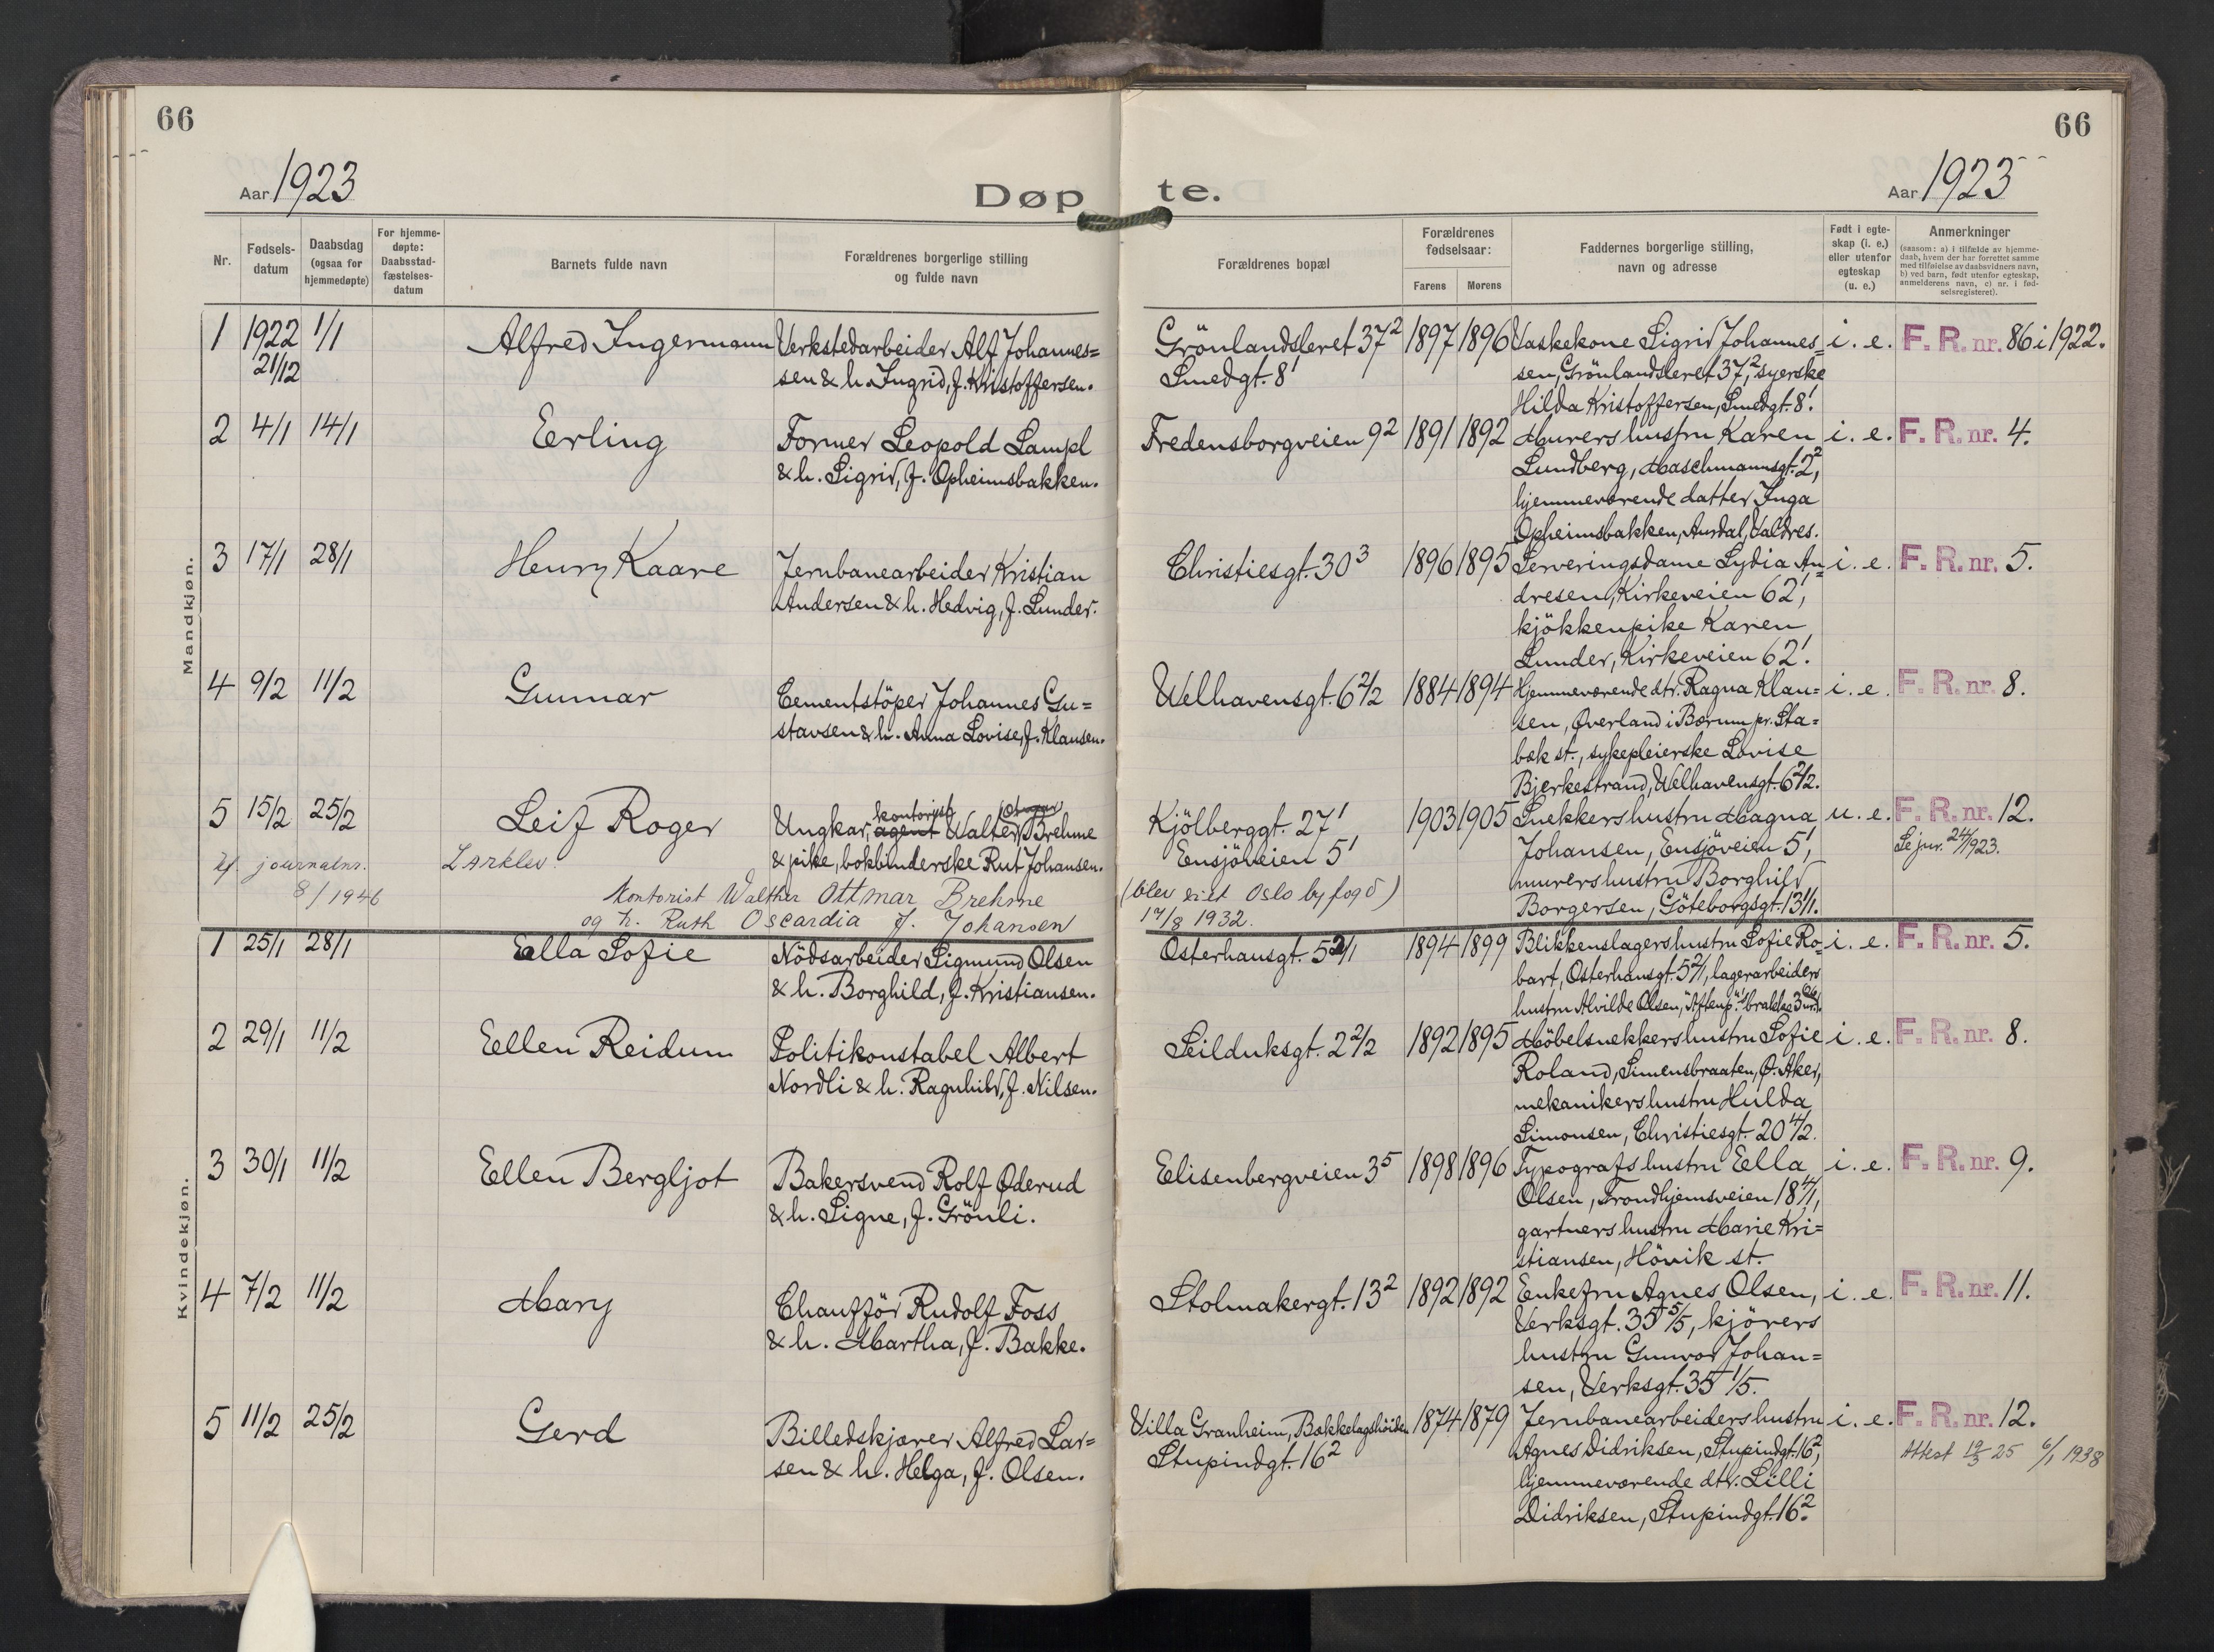 66
66
Aar 1923
Døp te.
Aar 1923
Nr.
Fødsels-
datum
Daabsdag
(ogsaa for
hjemmedøpte)
For hjemme-
døpte:
Daabsstad-
fæstelses-
datum
Barnets fulde navn
Forældrenes borgerlige stilling
og fulde navn
Forældrenes bopæl
Forældrenes
fødselsaar:
Farens
Mørens
Faddernes borgerlige stilling,
navn og adresse
Født i egte-
skap (i. e.)
eller utenfor
egteskap
(u. e.)
Anmerkninger
(saasom: a) i tilfælde av hjemme-
daab, hvem der har forrettet samme
med tilføielse av daabsvidners navn,
b) ved barn, født utenfor egteskap,
anmelderens navn, c) nr. i fød-
selsregisteret).
Mandkjøn.
1 1922 1/1 Alfred Ingermann Verkstedarbeider Alf Johannes= Grönlandsleret 37² 1897 1896 Vaskekone Sigrid Johannes= i. e. F. R. nr. 86 i 1922.
21/12 sen & h. Ingrid, f. Kristoffersen. Smedgt. 8¹ sen, Grönlandsleret 37², syerske
Hilda Kristoffersen, Smedgt. 8¹.
2 4/1 14/1 Erling Former Leopold Lampl Fredensborgveien 9² 1891 1892 Murers hustru Karen i. e. F. R. nr. 4.
& h. Sigrid, f. Opheimsbakken. Lundberg, Maschmannsgt. 2²,
hjemmeværende datter Inga
Opheimsbakken, Aurdal, Valdres.
3 17/1 28/1 Henry Kaare Jernbanearbeider Kristian Christiesgt. 30³ 1896 1895 Serveringsdame Lydia An= i. e. F. R. nr. 5.
Andersen & h. Hedvig, f. Lunder. dresen, Kirkeveien 62¹,
kjökkenpike Karen
Lunder, Kirkeveien 62¹.
4 9/2 11/2 Gunnar Cementstöper Johannes Gu= Welhavensgt. 6 2/2 1884 1894 Hjemmeværende dtr. Ragna Klau= i. e. F. R. nr. 8.
stavsen & h. Anna Lovise, f. Klausen. sen, Øverland i Bærum pr. Sta=
bæk st., sykepleierske Lovise
Bjerkestrand, Welhavensgt. 6 2/2.
5 15/2 25/2 Leif Roger Ungkar, agent kontorist Walter (Otmar) Brehme Kjölberggt. 27¹ 1903 1905 Snekkers hustru Magna u. e. F. R. nr. 12.
& pike, bokbinderske Rut Johansen. Ensjöveien 5¹ Johansen, Ensjöveien 5¹, Se jnr. 24/1923.
murers hustru Borghild
Borgersen, Göteborgsgt. 13/1.
journalnr.
8/1946
Kontorist Walther Ottmar Brehme (blev viet Oslo byfogd)
og h. Ruth Oscardia f. Johansen 17/8 1932.
Kvindekjøn.
1 25/1 28/1 Ella Sofie Nödsarbeider Sigmund Olsen Osterhausgt. 5 2/1 1894 1899 Blikkenslagers hustru Sofie Ro= i. e. F. R. nr. 5.
& h. Borghild, f. Kristiansen. bart, Osterhausgt. 5 2/1, lagerarbeiders
hustru Alvilde Olsen, "Aftenp."s brakke 3
2 29/1 11/2 Ellen Reidun Politikonstabel Albert Seilduksgt. 2 2/2 1892 1895 Möbelsnekkers hustru Sofie i. e. F. R. nr. 8.
Nordli & h. Ragnhild, f. Nilsen. Roland, Simensbraaten, Ø. Aker,
mekanikers hustru Hulda
Simonsen, Christiesgt. 20 4/2.
3 30/1 11/2 Ellen Bergljot Bakersvend Rolf Øderud Elisenbergveien 3⁵ 1898 1896 Typografs hustru Ella i. e. F. R. nr. 9.
& h. Signe, f. Grönli. Olsen, Trondhjemsveien 18 4/1,
gartners hustru Marie Kri=
stiansen, Hövik st.
4 7/2 11/2 Mary Chaufför Rudolf Foss Stolmakergt. 13² 1892 1892 Enkefru Agnes Olsen, i. e. F. R. nr. 11.
& h. Martha, f. Bakke. Verksgt. 35 5/5, kjörers
hustru Gunvor Johan=
sen, Verksgt. 35 1/5.
5 11/2 25/2 Gerd Billedskjærer Alfred Lar= Villa Granheim, Bækkelagshöiden 1874 1879 Jernbanearbeiders hustru i. e. F. R. nr. 12.
sen & h. Helga, f. Olsen. Stupindgt. 16² Agnes Didriksen, Stupindgt. 16², Attest 19/3 25 6/1 1938
hjemmeværende dtr. Lilli
Didriksen, Stupindgt. 16².